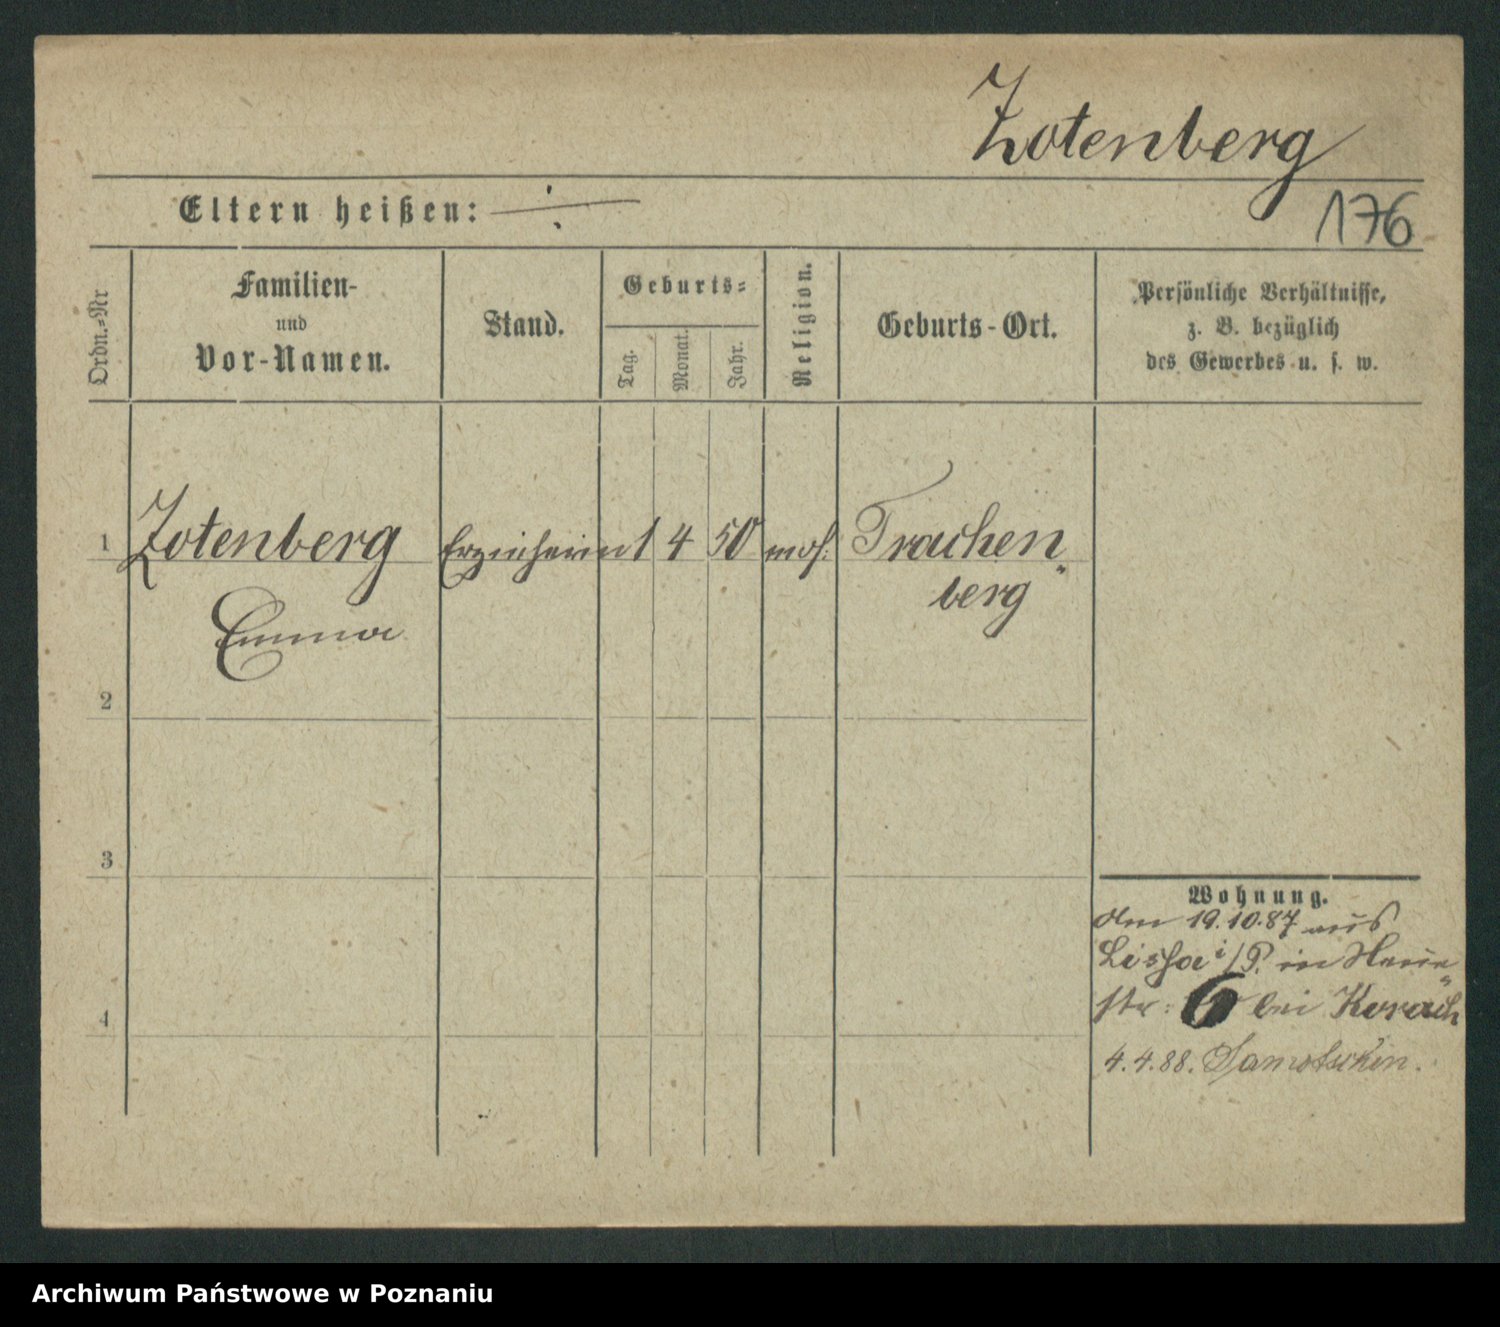 Zotenberg
Eltern heißen: ÷
176
Ordn.=Nr
Familien-
und
Vor-Namen.
Stand.
Geburts=
Tag.
Monat.
Jahr.
Religion.
Geburts-Ort.
Persönliche Verhältnisse,
z. B. bezüglich
des Gewerbes u. s. w.
1 Zotenberg Erzieherin 1 4 50 mos. Trachen
berg
Emma
2
3
4
Wohnung.
Am 19.10.87 aus
Lissa i/P. in Neue
str: 6 bei Korach
4.4.88. Samotschin.
Archiwum Państwowe w Poznaniu